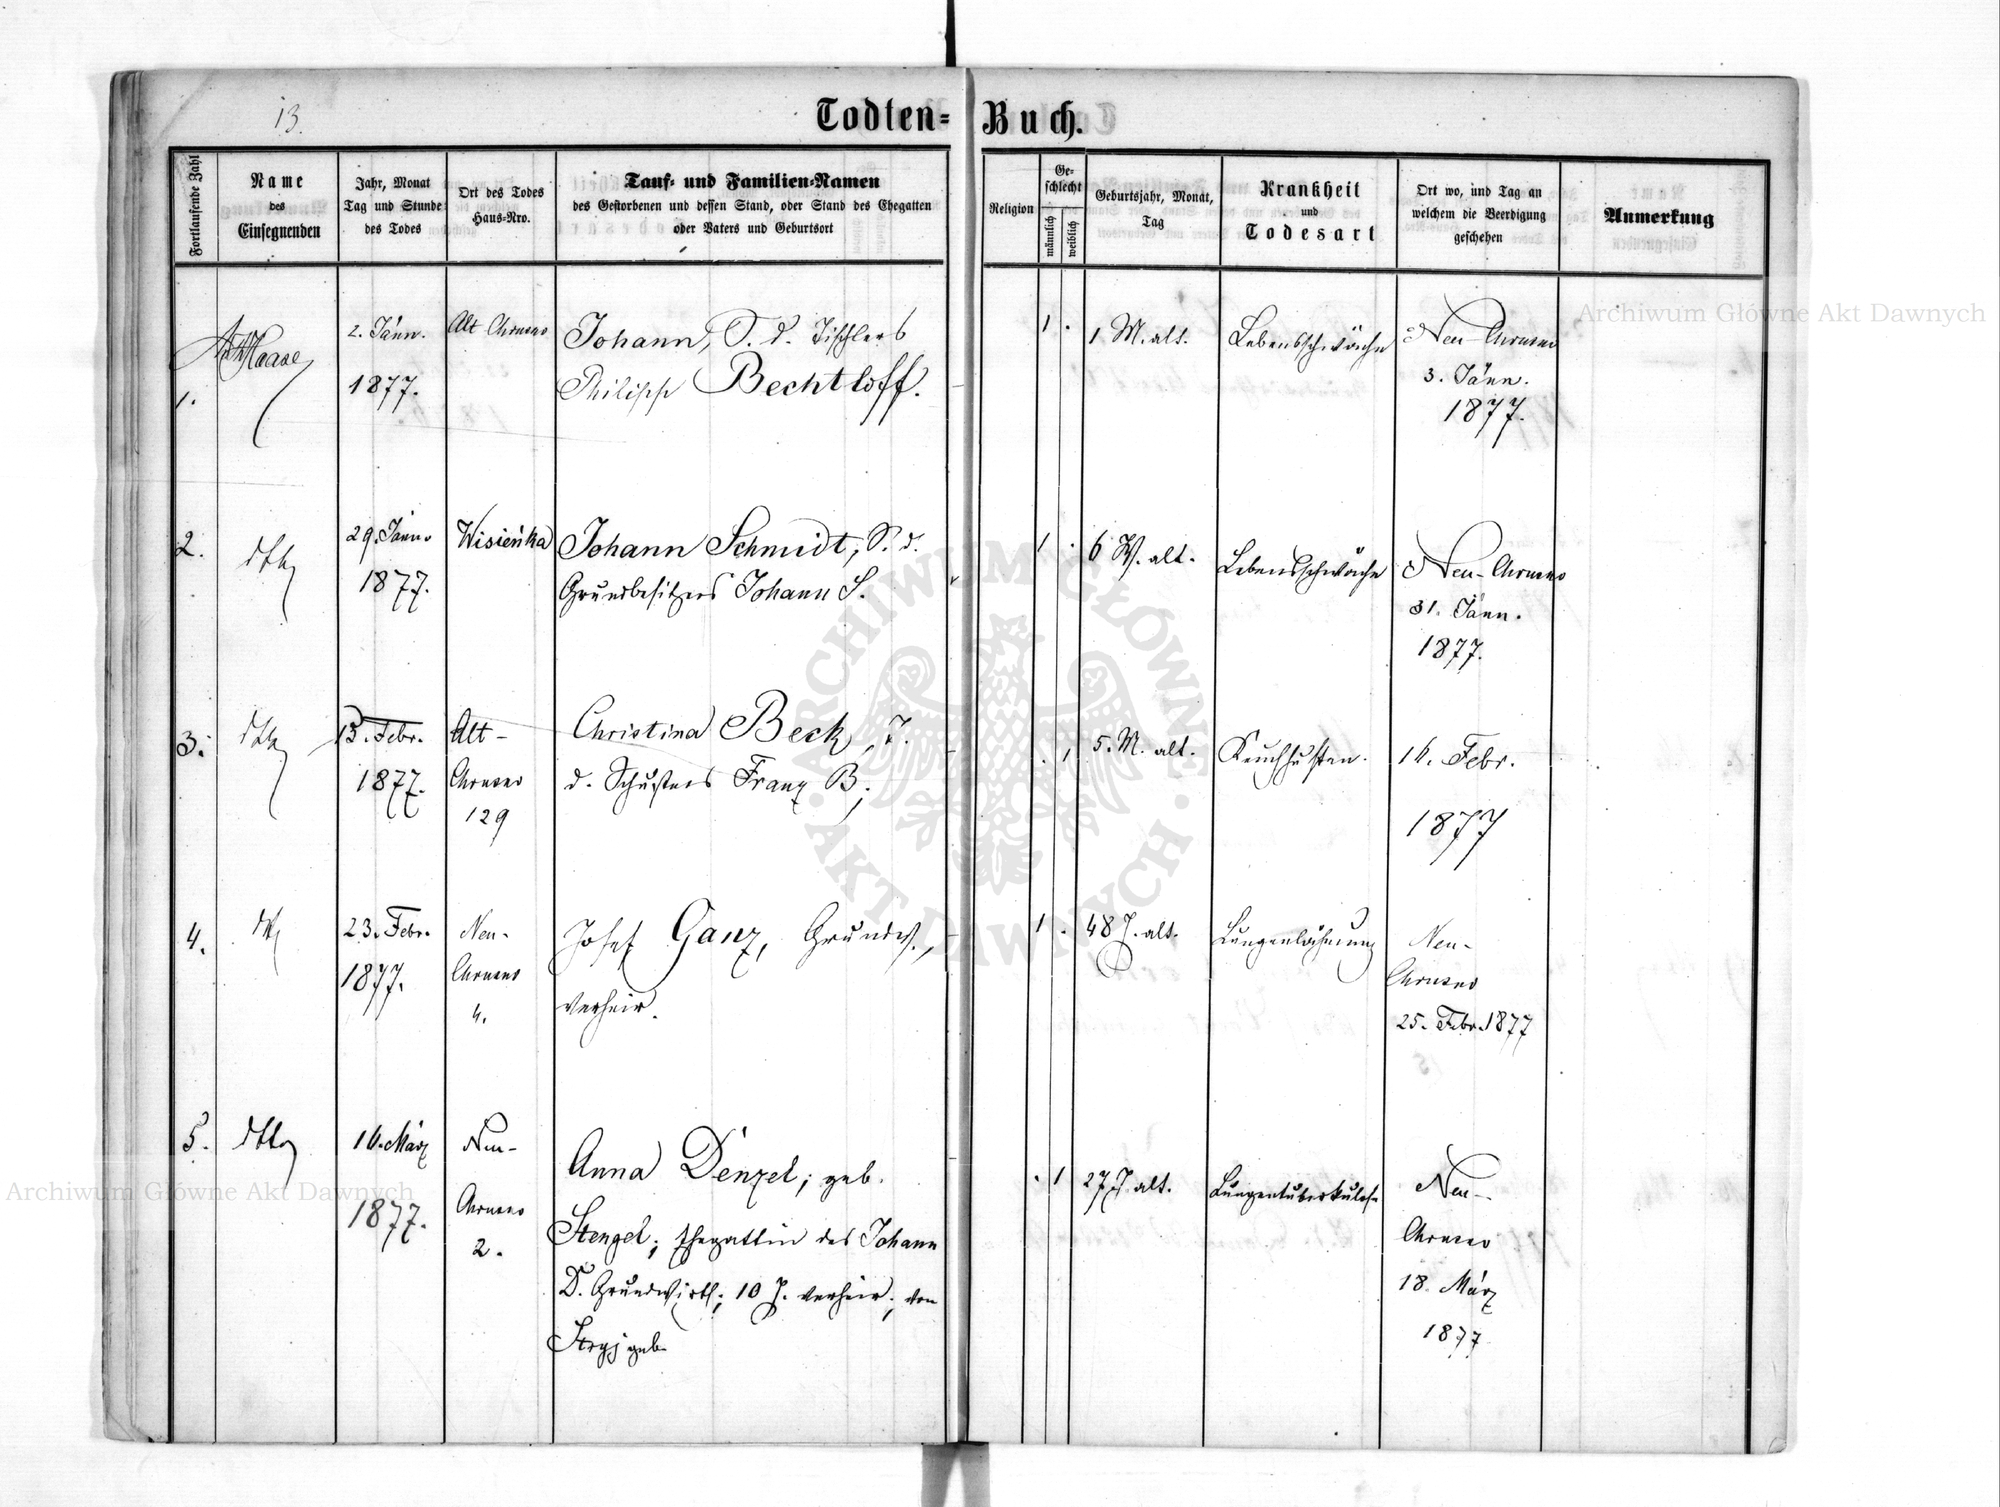 13.
Todten-Buch.
Fortlaufende Zahl
Name
des
Einsegnenden
Jahr, Monat
Tag und Stunde
des Todes
Ort des Todes
Haus-Nro.
Tauf- und Familien-Namen
des Gestorbenen und dessen Stand, oder Stand des Ehegatten
oder Vaters und Geburtsort
Religion
Ge-
schlecht
männlich
weiblich
Geburtsjahr, Monat,
Tag
Krankheit
und
Todesart
Ort wo, und Tag an
welchem die Beerdigung
geschehen
Anmerkung
1.
Haase
2. Jänn.
1877.
Alt Chrusno
Johann, S. d. Tischlers
Philipp Bechtloff.
1 .
1 M. alt.
Lebensschwäche
Neu-Chrusno
3. Jänn.
1877.
2.
dtto
29. Jänn.
1877.
Wisieńka
Johann Schmidt, S. d.
Grundbesitzers Johann S.
1 .
6 W. alt.
Lebensschwäche
Neu-Chrusno
31. Jänn.
1877.
3.
dtto
13. Febr.
1877.
Alt-
Chrusno
129
Christina Beck, T.
d. Schusters Franz B.
. 1
5. M. alt.
Keuchhusten.
16. Febr.
1877
4.
dtto
23. Febr.
1877.
Neu-
Chrusno
4.
Josef Ganz, Grundw.,
verheir.
1 .
48 J. alt.
Lungenlähmung
Neu-
Chrusno
25. Febr. 1877
5.
dtto
16. März
1877.
Neu-
Chrusno
2.
Anna Denzel; geb.
Stengel; Ehegattin des Johann
D. Grundwirth; 10 J. verheir.; von
Stryj geb.
. 1
27 J. alt.
Lungentuberkulose
Neu-
Chrusno
18. März
1877
Archiwum Główne Akt Dawnych
Archiwum Główne Akt Dawnych
ARCHIWUM GŁÓWNE
AKT DAWNYCH